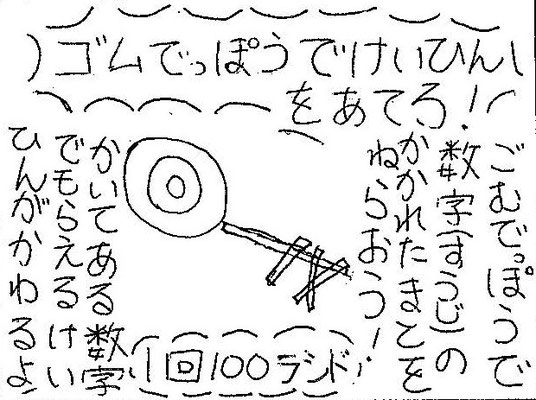 ゴムでっぽうでけいひん
をあてろ!
ごむでっぽうで
数字(すうじ)の
かかれたまとを
ねらおう!
かいてある数字
でもらえるけい
ひんがかわるよ
1回100ランド!